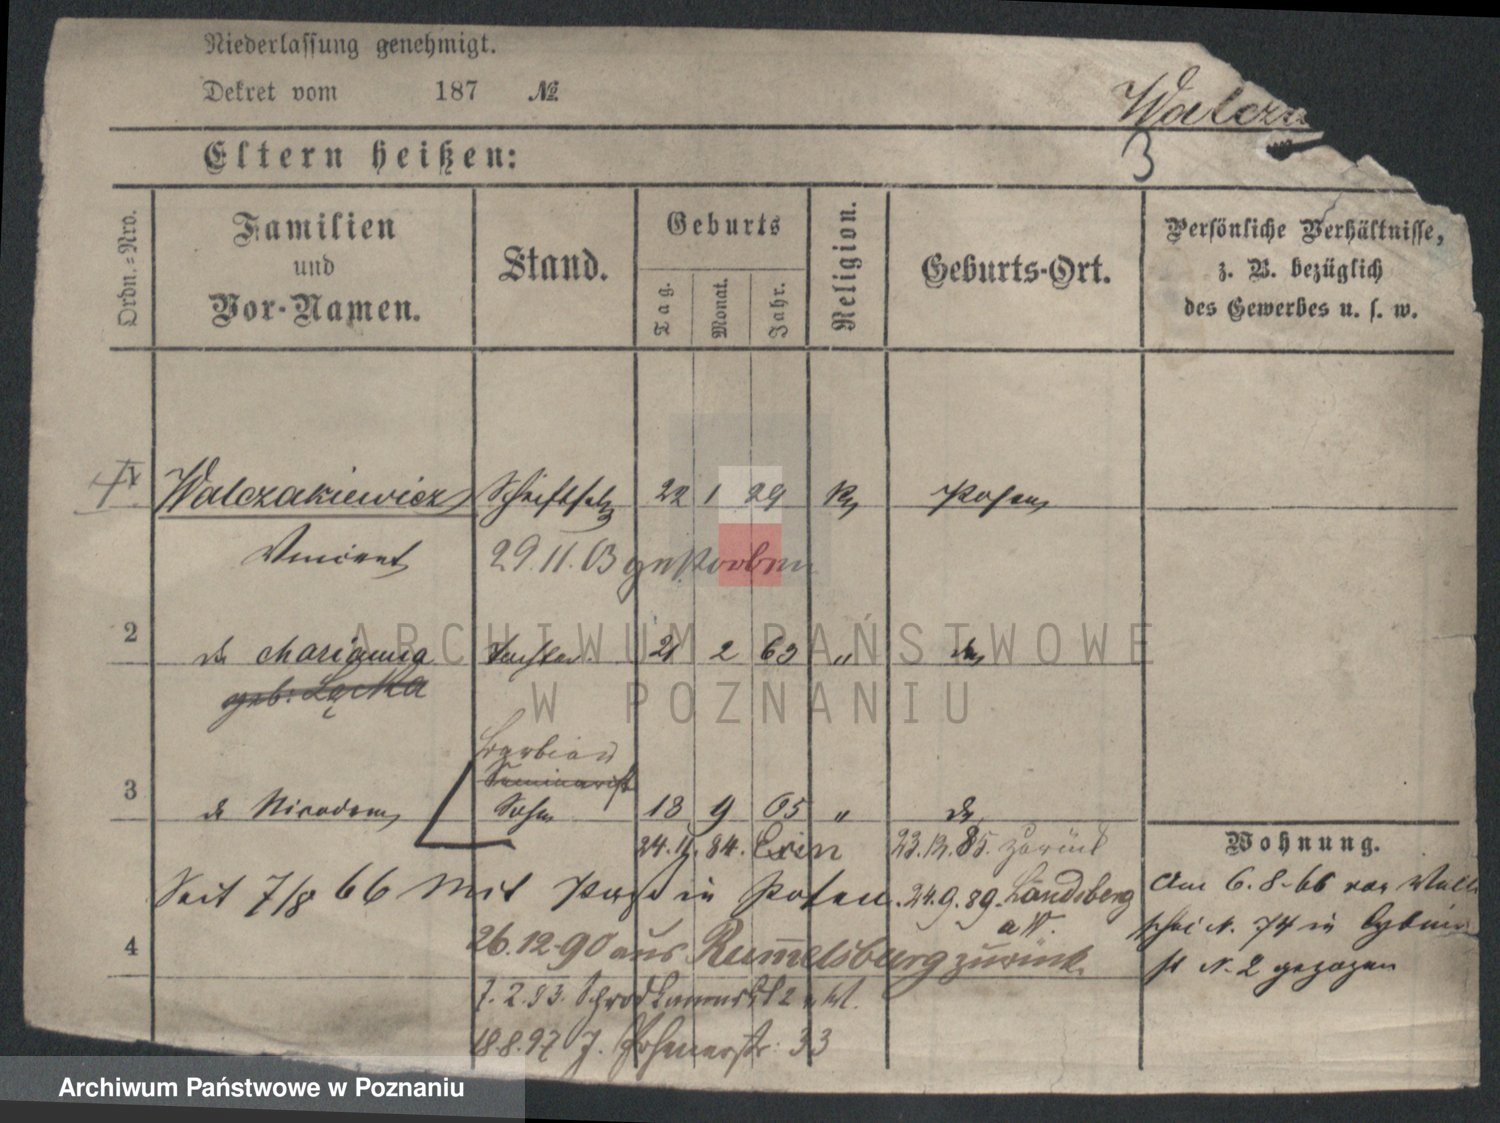 Niederlassung genehmigt.
Dekret vom 187 №
Walcza
3
Eltern heißen:
Ordn.=Nro.
Familien
und
Vor-Namen.
Stand.
Geburts
Tag.
Monat.
Jahr.
Religion.
Geburts-Ort.
Persönliche Verhältnisse,
z. B. bezüglich
des Gewerbes u. s. w.
1 Walczakiewicz Schriftsetz 22 1 29 K Posen
Vincent 29.11.03 gestorben
2 do Marianna Tochter 2 63 " do
geb: Lącka
Barbier
Seminarist
3 do Nicodem Sohn 18 9 65 " do
24.11.84. Exin 23.12.85. zurück
Wohnung.
Seit 7/8 66 mit Paß in Posen. 24.9.89. Landsberg
a W.
Am 6.8.66 von Wall
schei N. 74 in Cybina
st N. 2 gezogen
4
26.12.90 aus Rummelsburg zurück
7.2.93. Schrodkamarkt 2
18.8.97 J. Posenerstr: 33
ARCHIWUM PAŃSTWOWE
W POZNANIU
Archiwum Państwowe w Poznaniu